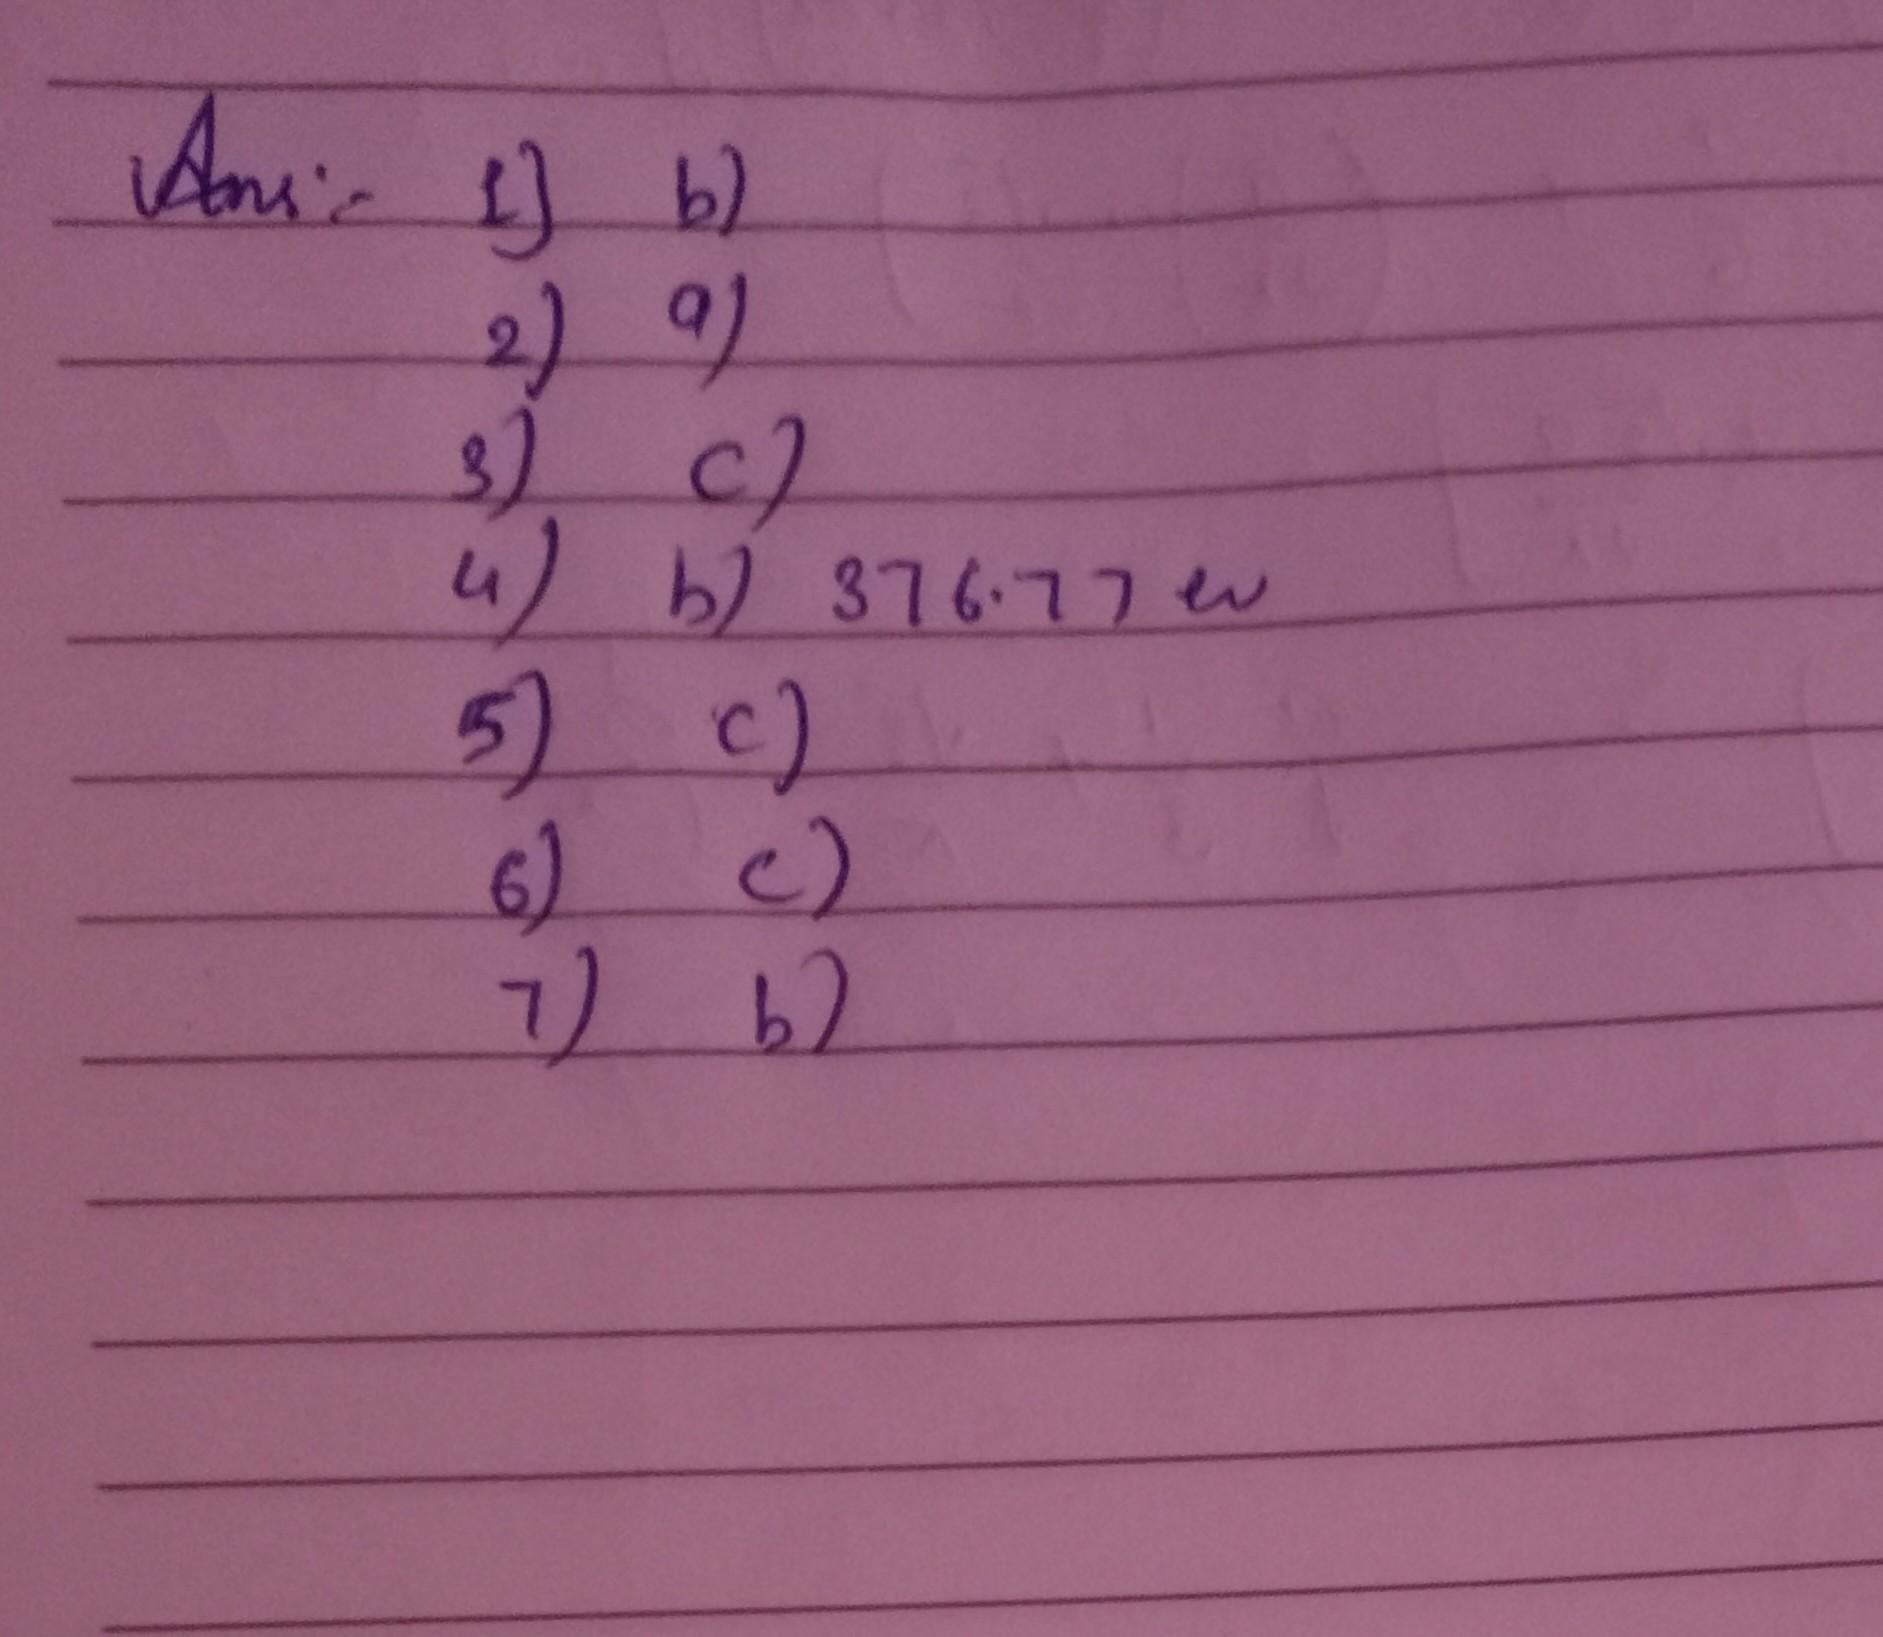 Ans:- 1] b)
2) a)
3) c)
4) b) 376.77 ev
5) c)
6) c)
7) b)